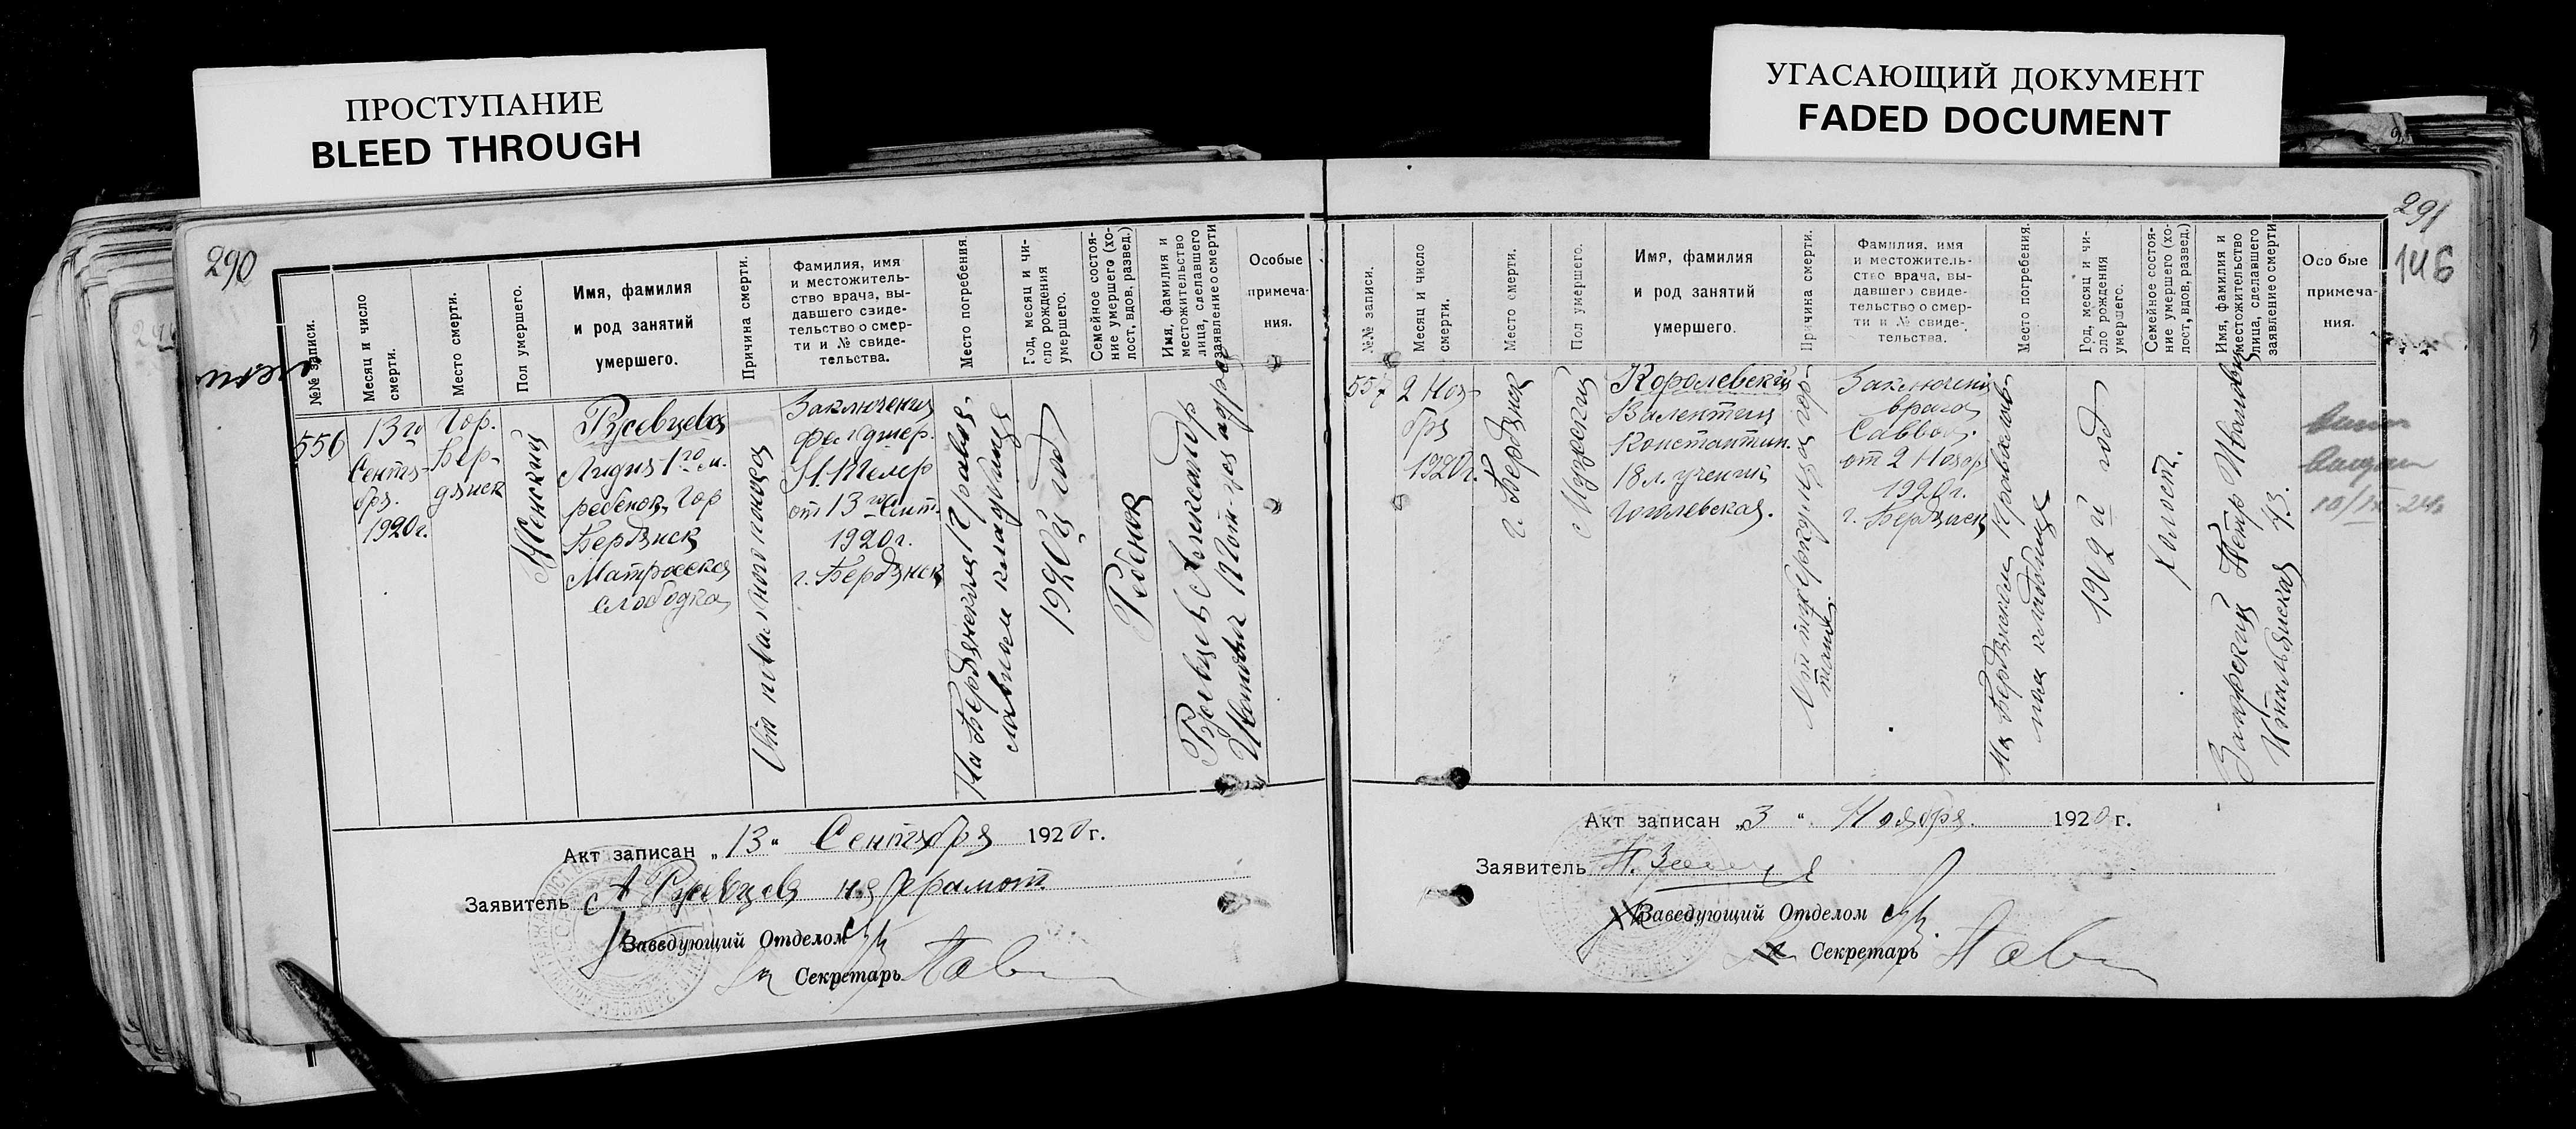 ПРОСТУПАНИЕ
BLEED THROUGH
УГАСАЮЩИЙ ДОКУМЕНТ
FADED DOCUMENT
290
№№ записи.
Месяц и число
смерти.
Место смерти.
Пол умершего.
Имя, фамилия
и род занятий
умершего.
Причина смерти.
Фамилия, имя
и местожитель-
ство врача, вы-
давшего свиде-
тельство о смер-
ти и № свиде-
тельства.
Место погребения.
Год, месяц и чи-
сло рождения
умершего.
Семейное состоя-
ние умершего (хо-
лост, вдов, развед.)
Имя, фамилия и
местожительство
лица, сделавшего
заявление о смерти
Особые
примеча-
ния.
556
13 го
Сентя-
бря.
1920 г.
Гор.
Бер-
дянск
Женский
Лидия 1 го м.
ребенок, Гор
Бердянск
Матросская
слободка
Заключения
фельдшер.
от 13 го Сент.
1920 г.
г. Бердянск
На Бердянском Правос-
лавном кладбище
1920 й год
Ребенок
Александр
Иванович адрес
Акт записан „13“ Сентября 1920 г.
Заявитель А
Заведующий Отделом
Секретарь
291
146
№№ записи.
Месяц и число
смерти.
Место смерти.
Пол умершего.
Имя, фамилия
и род занятий
умершего.
Причина смерти.
Фамилия, имя
и местожитель-
ство врача, вы-
давшего свиде-
тельство о смер-
ти и № свиде-
тельства.
Место погребения.
Год, месяц и чи-
сло рождения
умершего.
Семейное состоя-
ние умершего (хо-
лост, вдов, развед.)
Имя, фамилия и
местожительство
лица, сделавшего
заявление о смерти
Особые
примеча-
ния.
557
2 Ноя-
бря
1920 г.
г. Бердянск
Мужской
Королевский
Валентин
Константин.
18 л. ученик
Гоголевская.
От туберкулеза гор-
тани.
Заключения
врача
от 2 Ноябр
1920 г.
г. Бердянск
На Бердянском Православ-
ном кладбище
1902 й год
Холост.
Петр Иванович
Итальянская 73.
Акт записан „3“ Ноября. 1920 г.
Заявитель
Заведующий Отделом
Секретарь